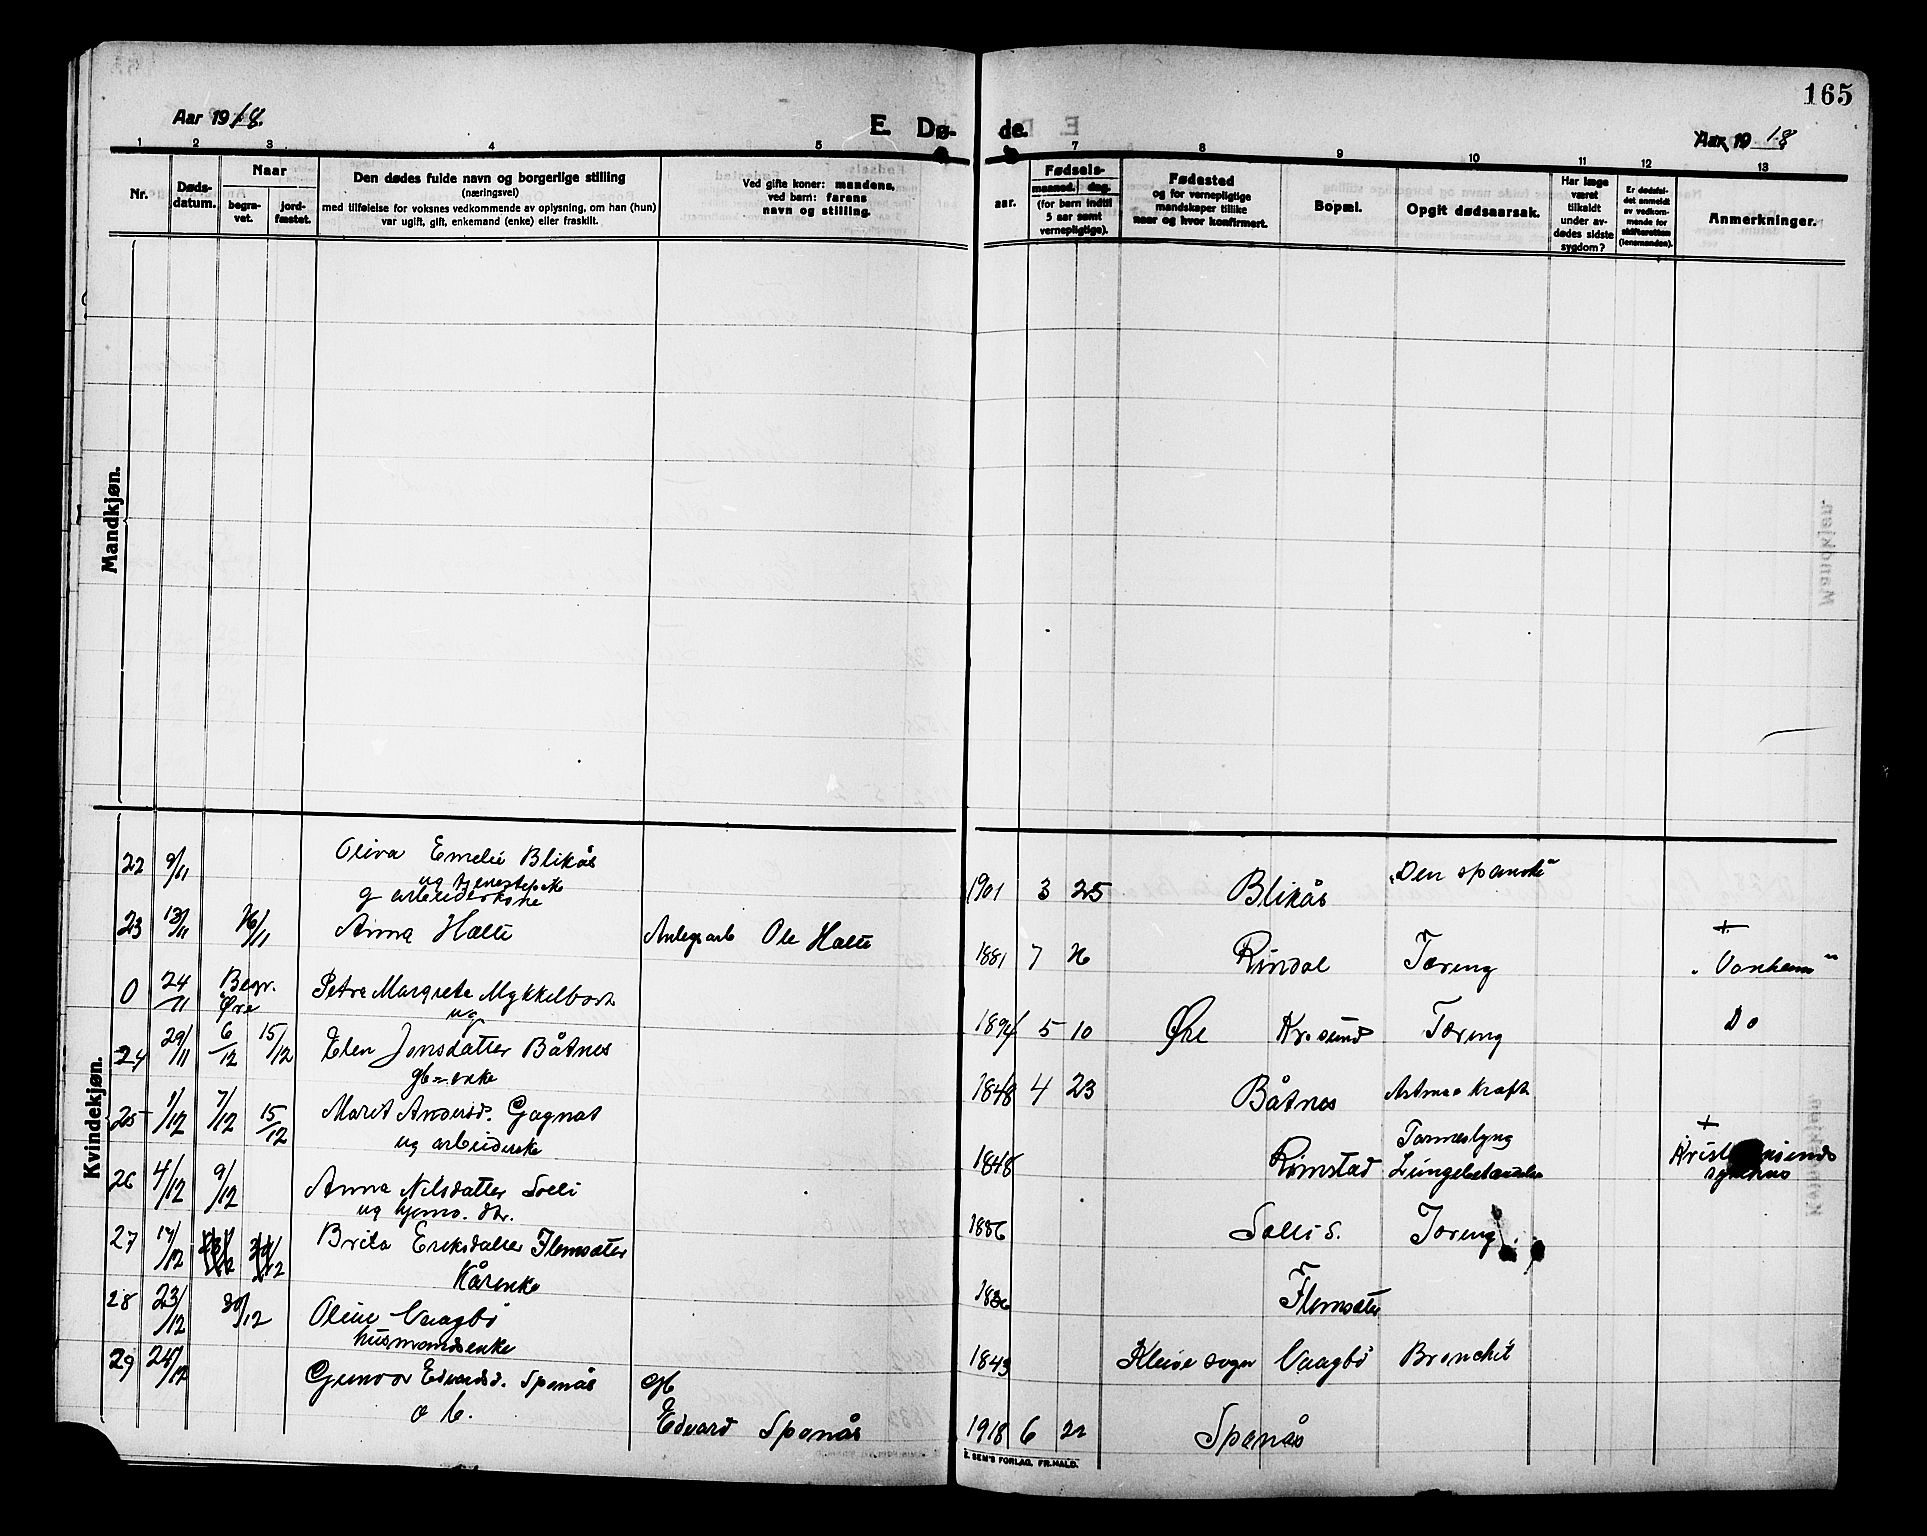 165
Aar 1918.
E. Dø-
de.
Aar 1918
1 2 3 4 5 7 8 9 10 11 12 13
Nr.
Døds-
datum.
Naar
begra-
vet.
jord-
fæstet.
Den dødes fulde navn og borgerlige stilling
(næringsvei)
med tilføielse for voksnes vedkommende av oplysning, om han (hun)
var ugift, gift, enkemand (enke) eller fraskilt.
Ved gifte koner: mandens,
ved børn: farens
navn og stilling.
aar.
Fødsels-
maaned. dag.
(for børn indtil
5 aar samt
vernepligtige).
Fødested
og for vernepligtige
mandskaper tillike
naar og hvor konfirmert.
Bopæl.
Opgit dødsaarsak.
Har læge
været
tilkaldt
under av-
dødes sidste
sygdom?
Er dødsfal-
det anmeldt
av vedkom-
mende for
skifteretten
(lensmanden).
Anmerkninger.
Mandkjøn.
Kvindekjøn.
22 9/11 Oliva Emelie Blikås
ug tjenestepike
1901 3 25 Blikås "Den spanske"
g arbeiderkone
23 13/11 16/11 Anna Halle Anlegsarb Ole Halle
1881 7 26 Rindal Tæring + "Vonheim"
0 24/11 Begr. Øre Petra Margrete Mykkelbost
ug
1894 5 10 Øre Kr.sund Tæring Do
24 29/11 6/12 15/12 Elen Jonsdatter Båtnes
gb=enke
1848 4 23 Båtnes Astma o kræft
25 1/12 7/12 15/12 Marit Andersd. Gagnat
ug arbeiderske
1848 Rimstad Tarmeslyng
+
26 4/12 9/12 Anna Nilsdatter Solli
ug hjemv. dtr.
1886 Solli s. Tæring
27 17/12 Brita Eriksdatter Flemsæter
Kårenke
1836 Flemsæter
28 23/12 30/12 Oline Vaagbø
husmandsenke
1843 Kleive sogn Vaagbø Bronchit
29 Gunvor Edvardsd. Spenås
gb
Edvard Spenås
1918 6 22 Spenås
E. SEM'S FORLAG, FR.HALD.